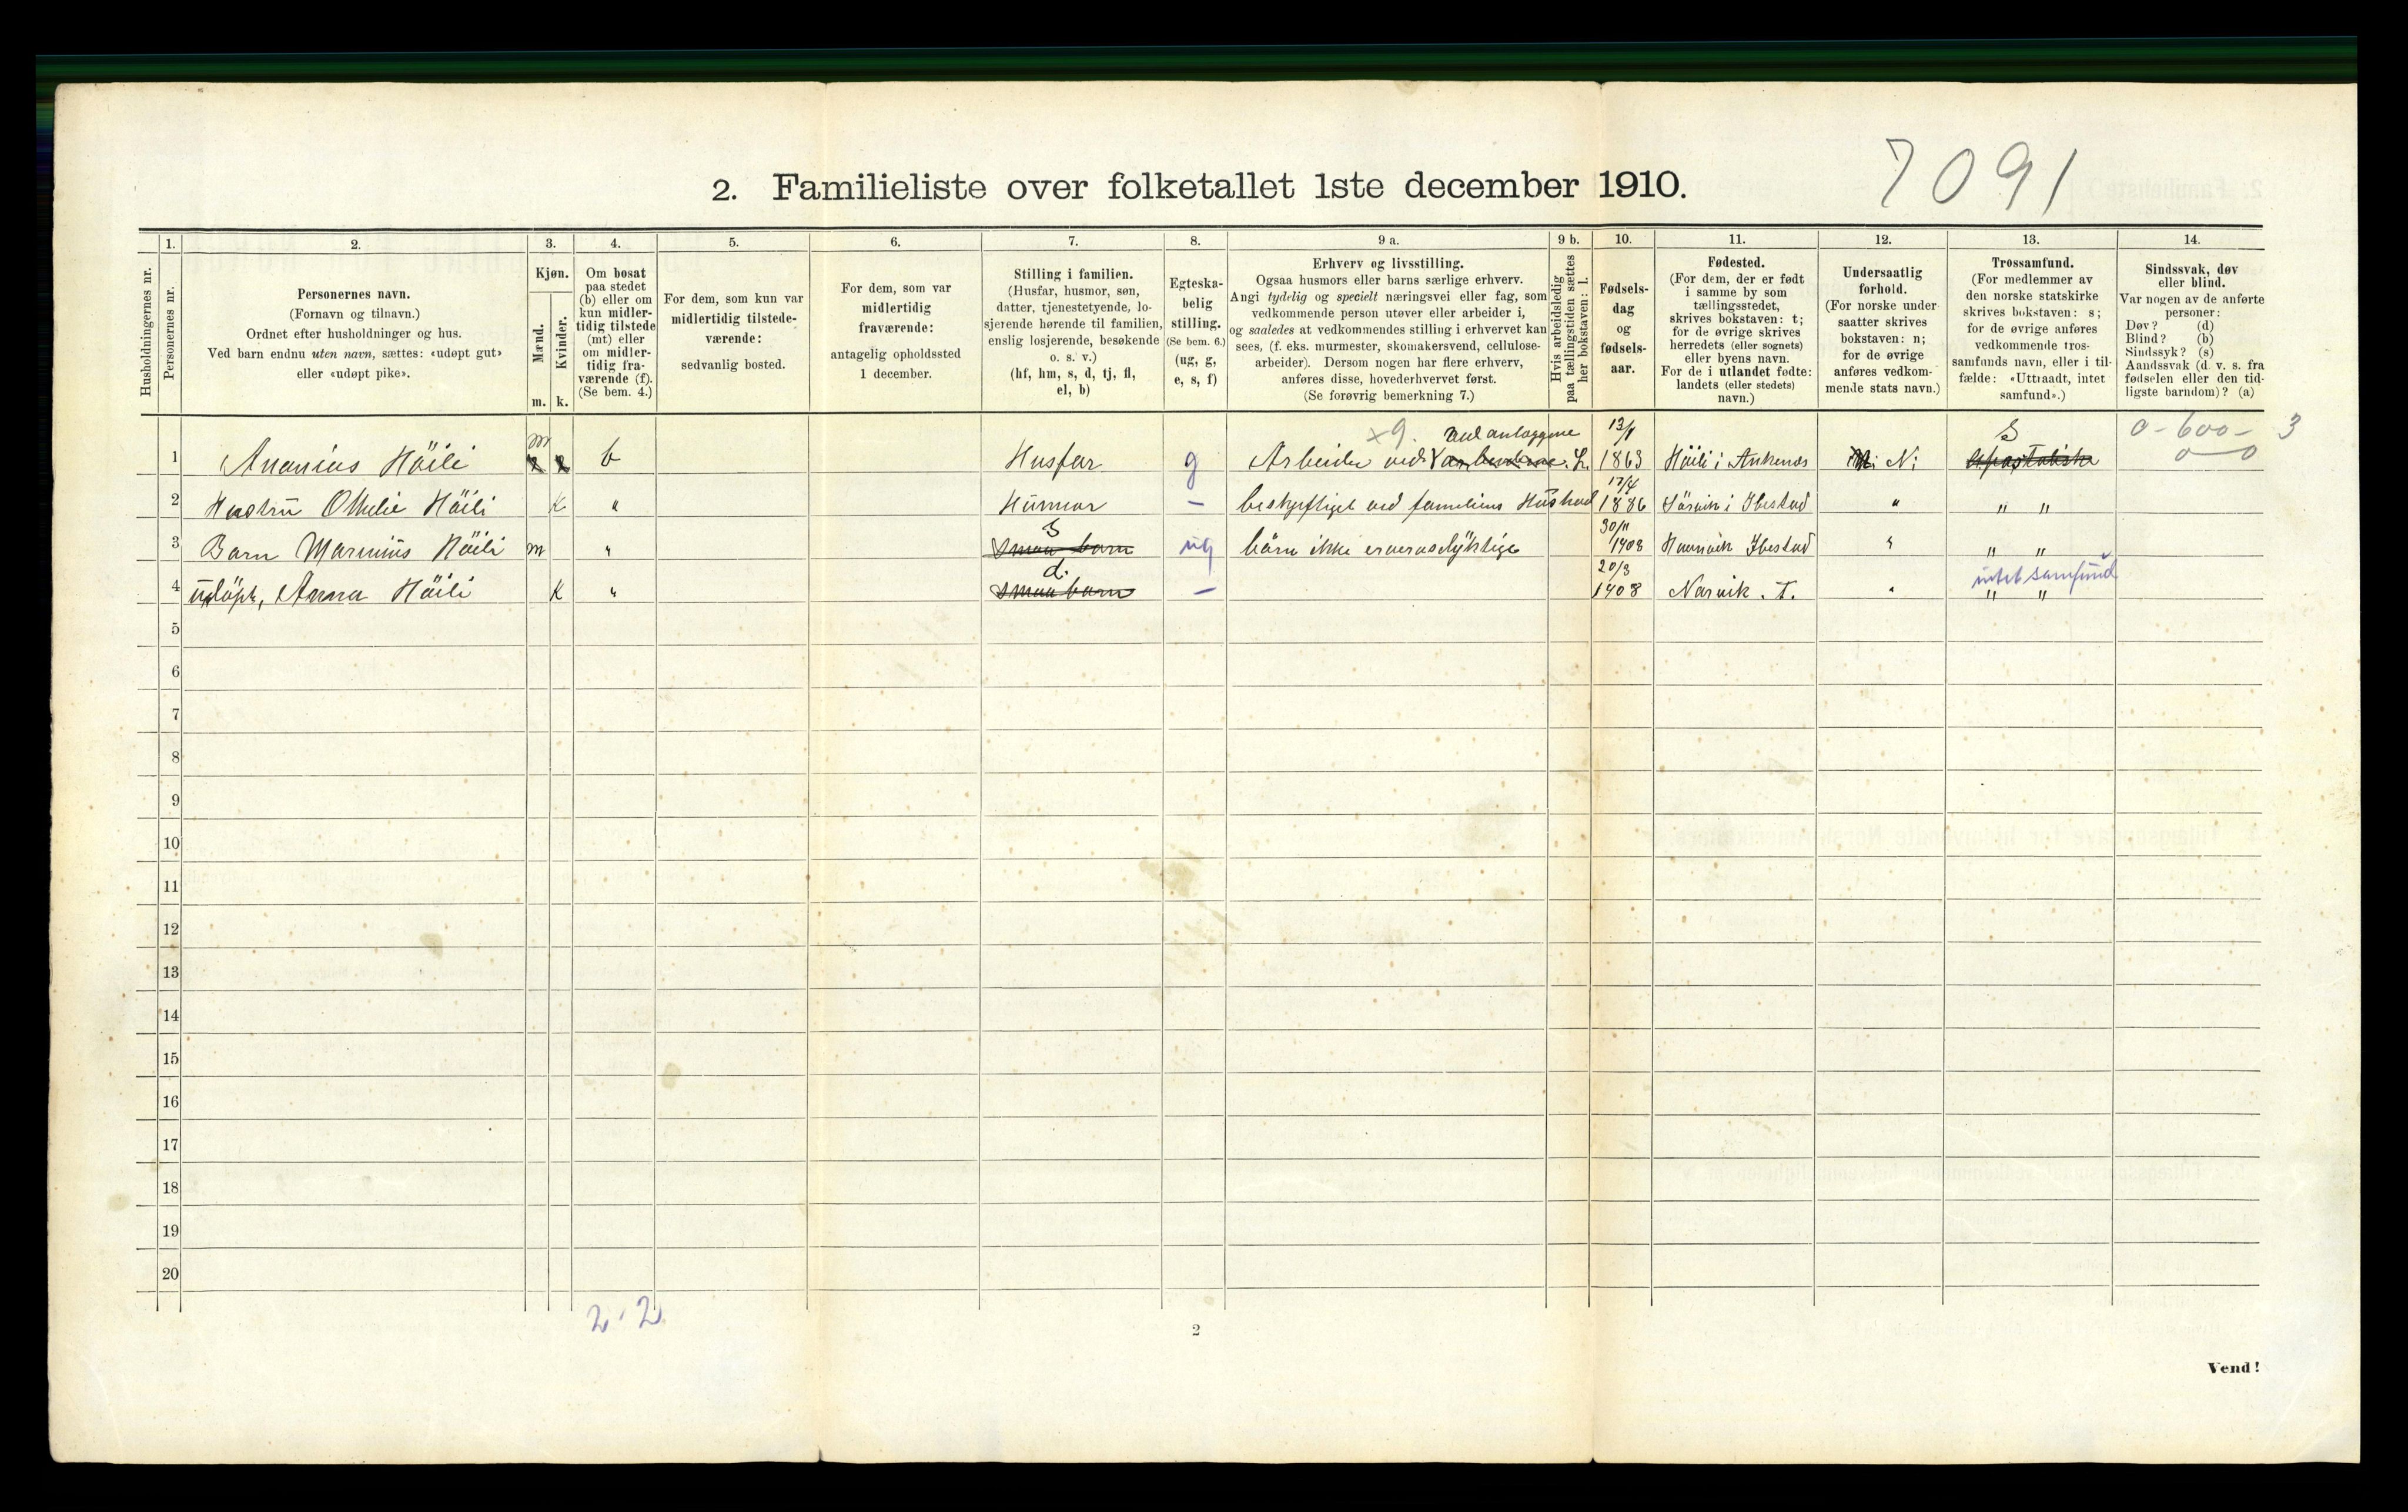 7091
2. Familieliste over folketallet 1ste december 1910.
Husholdningernes nr.
1.
Personernes nr.
2.
Personernes navn.
(Fornavn og tilnavn.)
Ordnet efter husholdninger og hus.
Ved barn endnu uten navn, sættes: «udøpt gut»
eller «udøpt pike».
3.
Kjøn.
Mænd.
Kvinder.
m. k.
4.
Om bosat
paa stedet
(b) eller om
kun midler-
tidig tilstede
(mt) eller
om midler-
tidig fra-
værende (f).
(Se bem. 4.)
5.
For dem, som kun var
midlertidig tilstede-
værende:
sedvanlig bosted.
6.
For dem, som var
midlertidig
fraværende:
antagelig opholdssted
1 december.
7.
Stilling i familien.
(Husfar, husmor, søn,
datter, tjenestetyende, lo-
sjerende hørende til familien,
enslig losjerende, besøkende
o. s. v.)
(hf, hm, s, d, tj, fl,
el, b)
8.
Egteska-
belig
stilling.
(Se bem. 6.)
(ug, g,
e, s, f)
9 a.
Erhverv og livsstilling.
Ogsaa husmors eller barns særlige erhverv.
Angi tydelig og specielt næringsvei eller fag, som
vedkommende person utøver eller arbeider i,
og saaledes at vedkommendes stilling i erhvervet kan
sees, (f. eks. murmester, skomakersvend, cellulose-
arbeider). Dersom nogen har flere erhverv,
anføres disse, hovederhvervet først.
(Se forøvrig bemerkning 7.)
9 b.
Hvis arbeidsledig
paa tællingstiden sættes
her bokstaven: l.
10.
Fødsels-
dag
og
fødsels-
aar.
11.
Fødested.
(For dem, der er født
i samme by som
tællingsstedet,
skrives bokstaven: t;
for de øvrige skrives
herredets (eller sognets)
eller byens navn.
For de i utlandet fødte:
landets (eller stedets)
navn.)
12.
Undersaatlig
forhold.
(For norske under-
saatter skrives
bokstaven: n;
for de øvrige
anføres vedkom-
mende stats navn.)
13.
Trossamfund.
(For medlemmer av
den norske statskirke
skrives bokstaven: s;
for de øvrige anføres
vedkommende tros-
samfunds navn, eller i til-
fælde: «Uttraadt, intet
samfund».)
14.
Sindssvak, døv
eller blind.
Var nogen av de anførte
personer:
Døv? (d)
Blind? (b)
Sindssyk? (s)
Aandssvak (d. v. s. fra
fødselen eller den tid-
ligste barndom)? (a)
m x9. ved anlæggene 13/1 S 0-600- 3
1 Ananias Höili b Husfar g Arbeider ved L. 1863 Höili i Ankenes N: 0-0
17/4
2 Hustrü Othelie Höili K " Hüsmor - beskjeftiget ved familiens Hüshad 1886 Sörvik i Ibestad " " "
S 30/11
3 Barn Marinius Höili m " smaa barn ug börn ikke erhvervsdyktige 1908 Hamnvik Ibestad " " "
d. 20/3 intet samfund
4 üdöpt, Anna Höili K " smaa barn - 1908 Narvik. T. " " "
5
6
7
8
9
10
11
12
13
14
15
16
17
18
19
20
2 · 2
2
Vend!